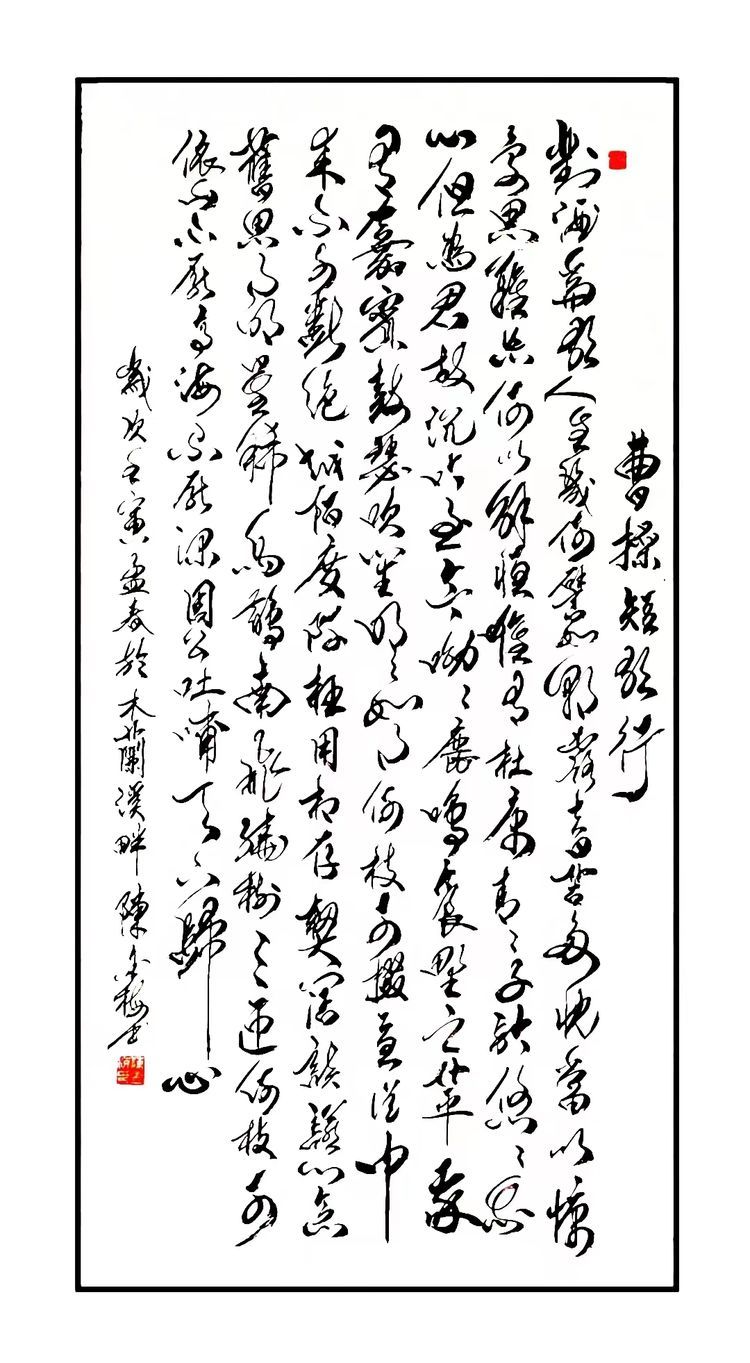 曹操短歌行
對酒當歌人生幾何譬如朝露去日苦多慨當以慷
憂思難忘何以解憂惟有杜康青〻子衿悠〻我
心但為君故沉吟至今呦〻鹿鳴食野之苹我
有嘉賓鼓瑟吹笙明〻如月何枝可掇憂從中
來不可斷絕越陌度阡枉用相存契闊談讌心念
舊恩月明星稀烏鵲南飛繞樹三匝何枝可
依山不厭高海不厭深周公吐哺天下歸心
歲次壬寅孟春於木蘭溪畔陳金梅書